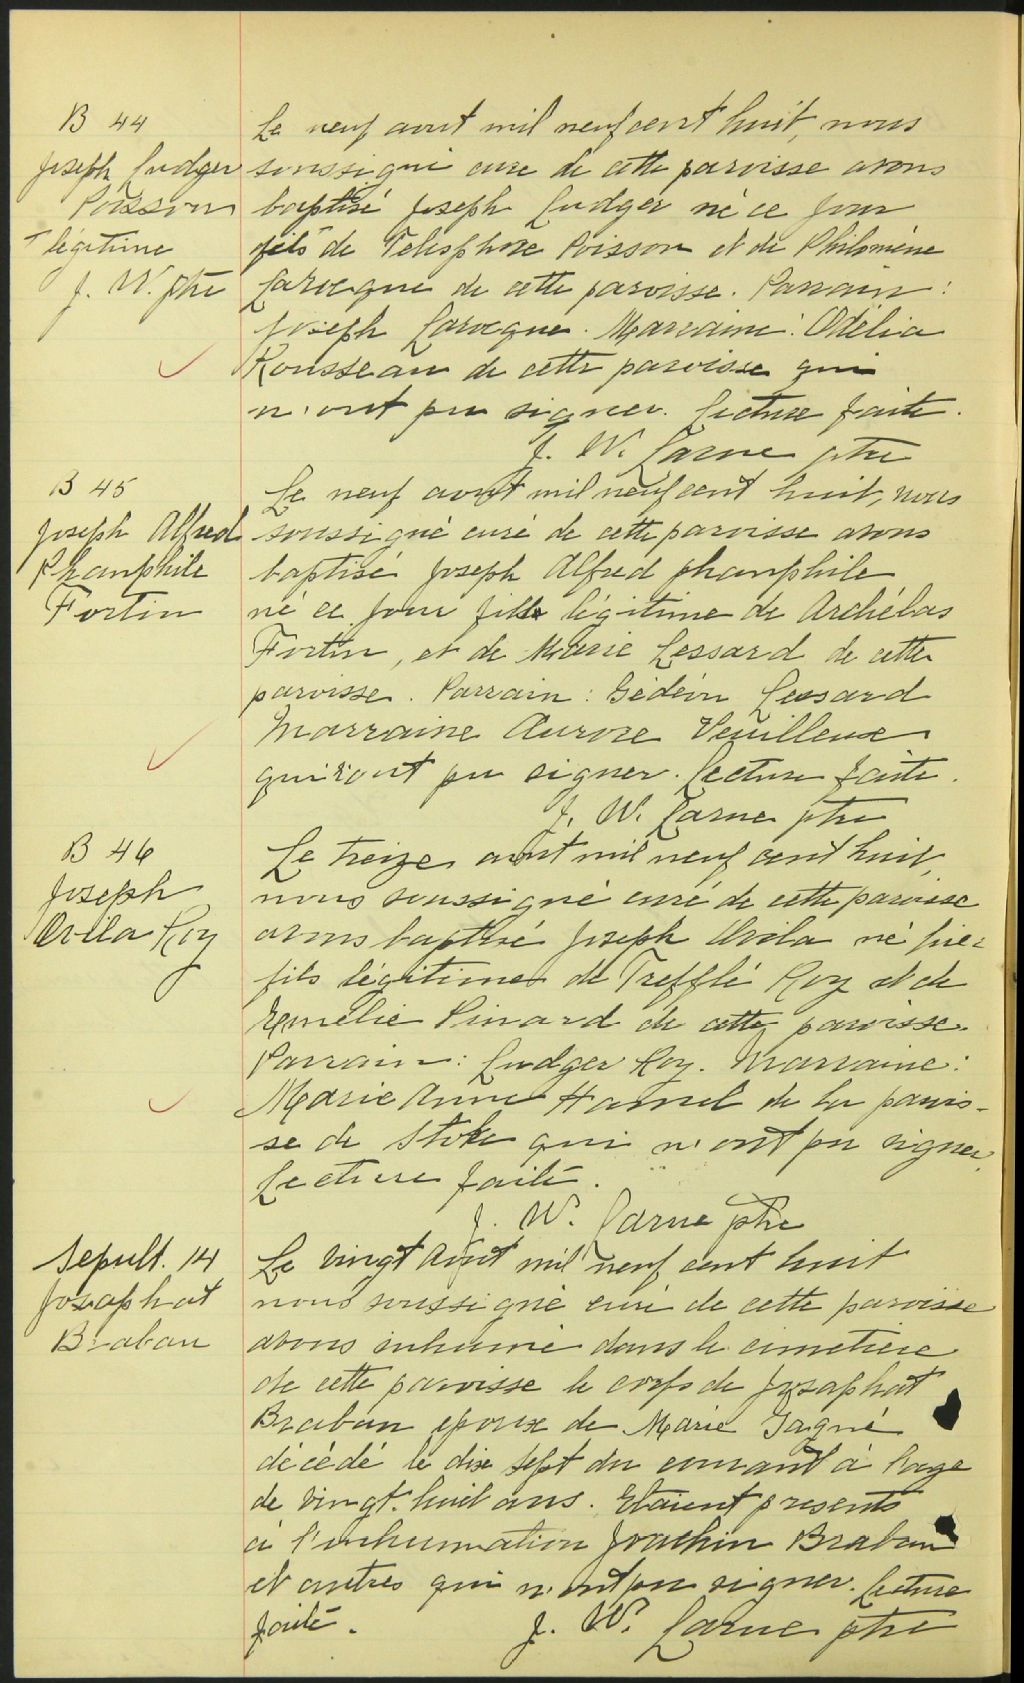 B 44
Joseph Ludger
Poisson
+ légitime
J. W. ptre
Le neuf aout mil neuf cent huit, nous
soussigné curé de cette paroisse avons
baptisé Joseph Ludger né ce jour
fils + de Telesphore Poisson et de Philomène
Larocque de cette paroisse. Parrain :
Joseph Larocque. Marraine : Odélia
Rousseau de cette paroisse qui
n'ont pu signer. Lecture faite.
J. W. Larue ptre
B 45
Joseph Alfred
Phamphile
Fortin
Le neuf aout mil neuf cent huit, nous
soussigné curé de cette paroisse avons
baptisé Joseph Alfred phamphile
né ce jour fils légitime de Archélas
Fortin, et de Marie Lessard de cette
paroisse. Parrain : Gédéon Lessard
Marraine Aurore Veuilleux
qui n'ont pu signer. Lecture faite.
J. W. Larue ptre
B 46
Joseph
Avila Roy
Le treize aout mil neuf cent huit,
nous soussigné curé de cette paroisse
avons baptisé Joseph Avila né hier
fils légitime de Trefflé Roy et de
Emélie Pinard de cette paroisse.
Parrain : Ludger Roy. Marraine :
Marie Anne Hamel de la parois-
se de Stoke qui n'ont pu signer.
Lecture faite.
J. W. Larue ptre
Sepult. 14
Josaphat
Braban
Le vingt Aout mil neuf cent huit
nous soussigné curé de cette paroisse
avons inhumé dans le cimetiere
de cette paroisse le corps de Josaphat
Braban epoux de Marie Gagné
décédé le dix sept du courant à l'age
de vingt-huit ans. Etaient presents
à l'inhumation Joachin Braban
et autres qui n'ont pu signer. Lecture
faite.
J. W. Larue ptre